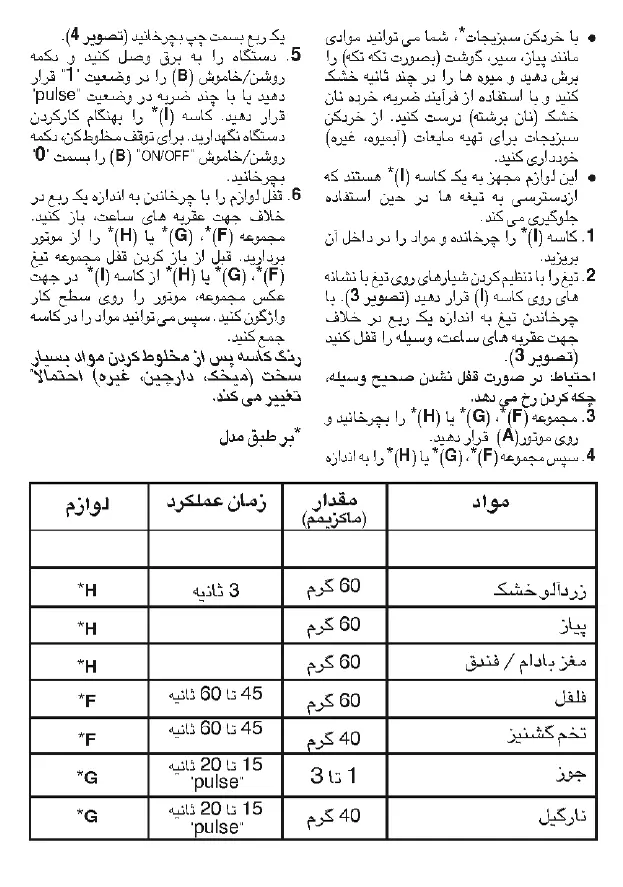 • با خردکن سبزیجات*، شما می توانید موادی
مانند پیاز، سیر، گوشت (بصورت تکه تکه) را
برش دهید و میوه ها را در چند ثانیه خشک
کنید و با استفاده از فرآیند ضربه، خرده نان
خشک (نان برشته) درست کنید. از خردکن
سبزیجات برای تهیه مایعات (آبمیوه، غیره)
خودداری کنید.
• این لوازم مجهز به یک کاسه (I)* هستند که
ازدسترسی به تیغه ها در حین استفاده
جلوگیری می کند.
1. کاسه (I)* را چرخانده و مواد را در داخل آن
بریزید.
2. تیغ را با تنظیم کردن شیارهای روی تیغ با نشانه
های روی کاسه (I) قرار دهید (تصویر 3). با
چرخاندن تیغ به اندازه یک ربع در خلاف
جهت عقربه های ساعت، وسیله را قفل کنید
(تصویر 3).
احتیاط: در صورت قفل نشدن صحیح وسیله،
چکه کردن رخ می دهد.
3. مجموعه (F)*، (G)* یا (H)* را بچرخانید و
روی موتور(A) قرار دهید.
4. سپس مجموعه (F)*، (G)* یا (H)* را به اندازه
یک ربع بسمت چپ بچرخانید (تصویر 4).
5. دستگاه را به برق وصل کنید و دکمه
روشن/خاموش (B) را در وضعیت "1" قرار
دهید یا با چند ضربه در وضعیت "pulse"
قرار دهید. کاسه (I)* را بهنگام کارکردن
دستگاه نگهدارید. برای توقف مخلوط کن، دکمه
روشن/خاموش "ON/OFF" (B) را بسمت "0"
بچرخانید.
6. قفل لوازم را با چرخاندن به اندازه یک ربع در
خلاف جهت عقربه های ساعت، باز کنید.
مجموعه (F)*، (G)* یا (H)* را از موتور
بردارید. قبل از باز کردن قفل مجموعه تیغ
(F)*، (G)* یا (H)* از کاسه (I)* در جهت
عکس مجموعه، موتور را روی سطح کار
واژگون کنید. سپس می توانید مواد را در کاسه
جمع کنید.
رنگ کاسه پس از مخلوط کردن مواد بسیار
سخت (میخک، دارچین، غیره) احتمالاً
تغییر می کند.
*بر طبق مدل
مواد مقدار زمان عملکرد لوازم
(ماکزیمم)
زردآلو خشک 60 گرم 3 ثانیه H*
پیاز 60 گرم H*
مغز بادام / فندق 60 گرم H*
فلفل 60 گرم 45 تا 60 ثانیه F*
تخم گشنیز 40 گرم 45 تا 60 ثانیه F*
جوز 1 تا 3 15 تا 20 ثانیه G*
"pulse"
نارگیل 40 گرم 15 تا 20 ثانیه G*
"pulse"